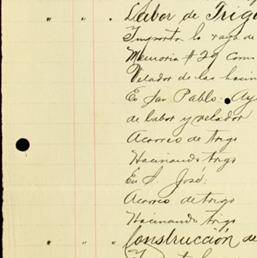 " " " Labor de Trigo
Importa la raya de
Memoria # 29 Com
Velador de las hacin
En San Pablo: Ay
de labor y velador
Acarreo de trigo
Hacinando trigo
En S. José:
Acarreo de trigo
Hacinando trigo
" " " Construcción de